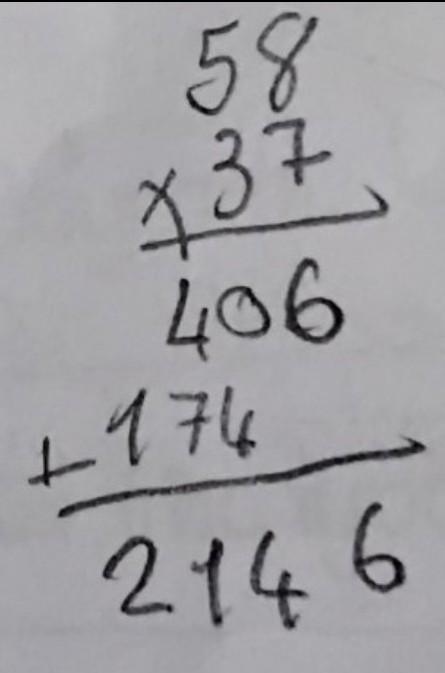 58
x 37
406
+ 174
2146